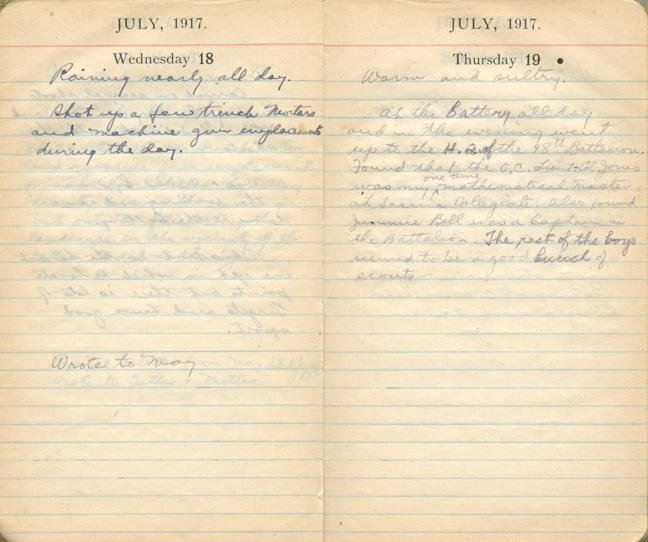 JULY, 1917.
Wednesday 18
Raining nearly all day.
Shot up a few trench mortars
and machine gun emplacements
during the day.
Wrote to May
Wrote to Father & Mother.
JULY, 1917.
Thursday 19
Warm and sultry.
At the Battery all day
and in the evening went
up to the H.Q. of the 98th Battalion.
Found that the O.C. Lieut. Col. Jones
was my one time mathematical Master
at Sarnia Collegiate. Also found
Jimmie Bell was a Captain in
the Battalion. The rest of the boys
seemed to be a good bunch of
scouts